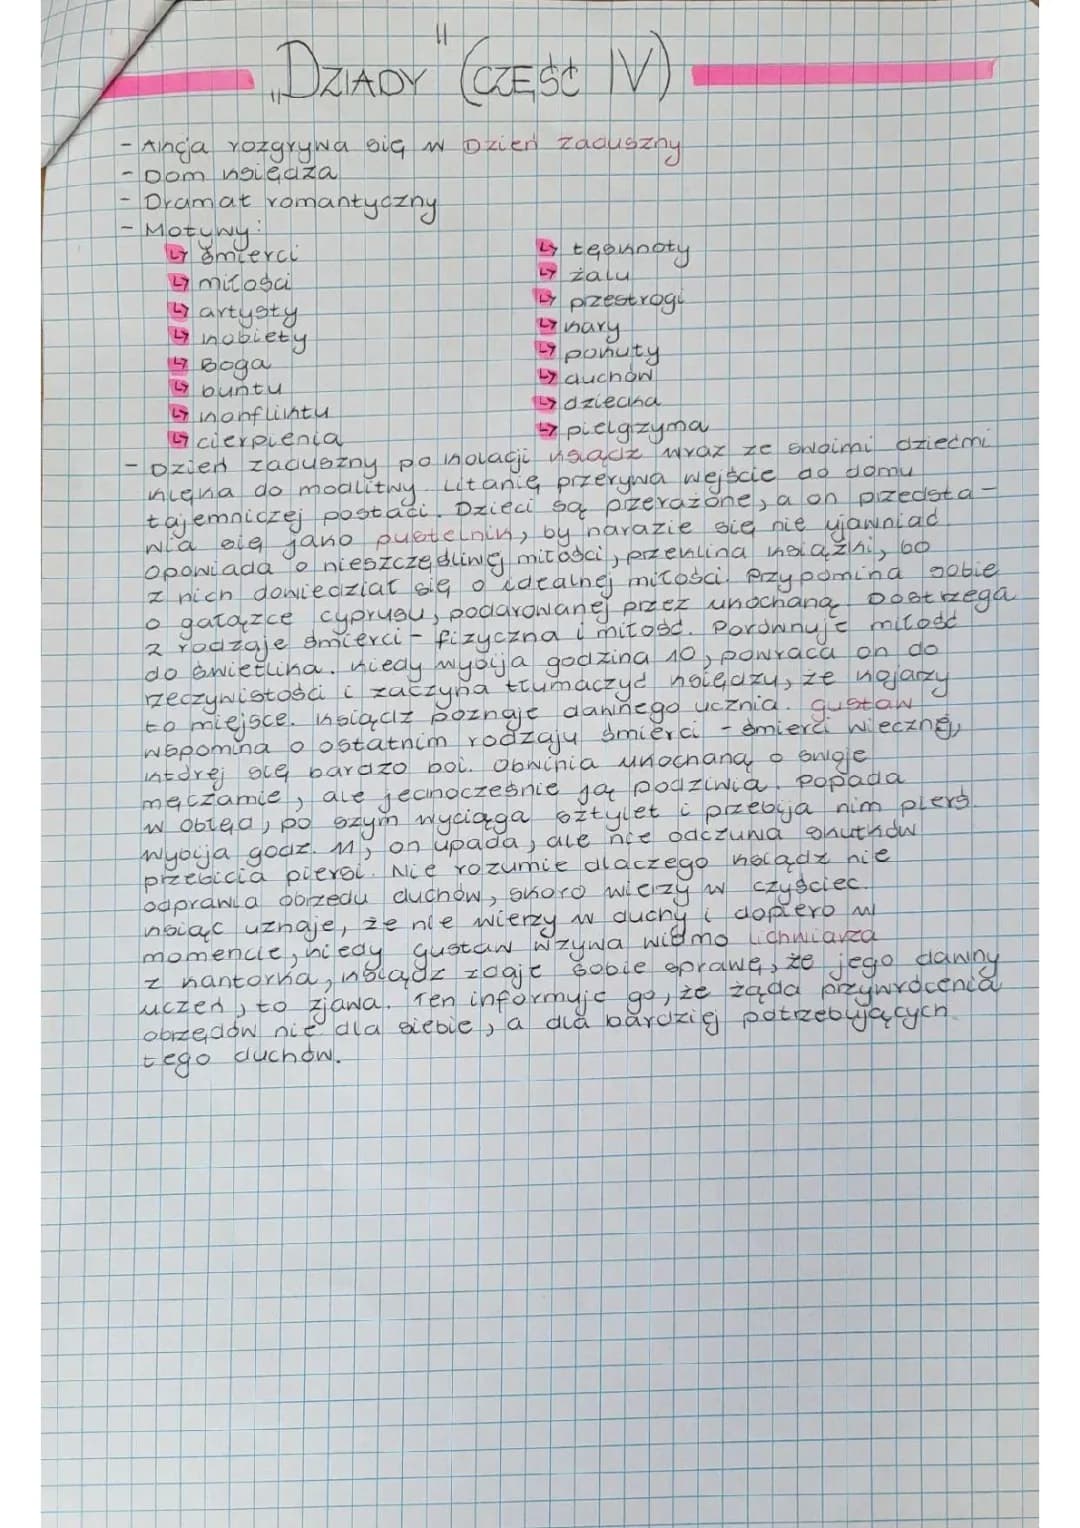 „DZIADY" (CZĘŚĆ IV)
- Akcja rozgrywa się w Dzień zaduszny
- Dom księdza
- Dramat romantyczny
- Motywy:
↳ śmierci
↳ miłości
↳ artysty
↳ kobiety
↳ Boga
↳ buntu
↳ konfliktu
↳ cierpienia
↳ tęsknoty
↳ żalu
↳ przestrogi
↳ kary
↳ pokuty
↳ duchów
↳ dziecka
↳ pielgrzyma
- Dzień zaduszny po kolacji ksiądz wraz ze swoimi dziećmi
klęka do modlitwy. Litanię przerywa wejście do domu
tajemniczej postaci. Dzieci są przerażone, a on przedsta-
wia się jako pustelnik, by narazie się nie ujawniać.
Opowiada o nieszczęśliwej miłości, przeklina książki, bo
z nich dowiedział się o idealnej miłości. Przypomina sobie
o gałązce cyprysu, podarowanej przez ukochaną. Dostrzega
2 rodzaje śmierci - fizyczna i miłość. Porównuje miłość
do świetlika. Kiedy wybija godzina 10, powraca on do
rzeczywistości i zaczyna tłumaczyć księdzu, że kojarzy
to miejsce. Ksiądz poznaje dawnego ucznia. Gustaw
wspomina o ostatnim rodzaju śmierci - śmierci wiecznej,
której się bardzo boi. Obwinia ukochaną o swoje
męczarnie, ale jednocześnie ją podziwia. Popada
w obłęd, po szym wyciąga sztylet i przebija nim pierś.
Wybija godz. 11, on upada, ale nie odczuwa skutków
przebicia piersi. Nie rozumie dlaczego ksiądz nie
odprawia obrzędu duchów, skoro wierzy w czyściec.
Ksiąc uznaje, że nie wierzy w duchy i dopiero w
momencie, kiedy Gustaw wzywa widmo lichwiarza
z kantorka, ksiądz zdaje sobie sprawę, że jego dawny
uczeń, to zjawa. Ten informuje go, że żąda przywrócenia
obrzędów nie dla siebie, a dla bardziej potrzebujących
tego duchów.